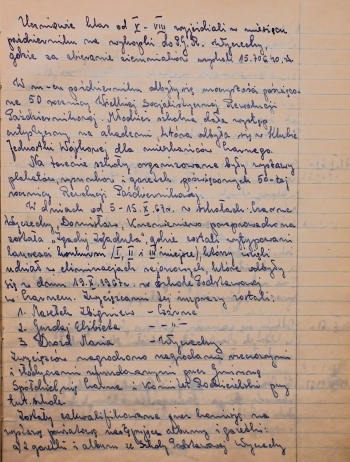 Uczniowie klas od V - VIII wyjeżdżali w miesiącu
październiku na wykopki do P.G.R. Wyczechy,
gdzie za zbieranie ziemniaków zyskali 15.706,40 zł
W m-cu październiku odbyły się uroczystości poświęco-
ne 50 rocznicy Wielkiej Socjalistycznej Rewolucji
Październikowej. Młodzież szkolna dała występ
artystyczny na akademii, która odbyła się w Klubie
Jednostki Wojskowej dla mieszkańców Czarnego.
Na terenie szkoły organizowane były wystawy
plakatów, rysunków i gazetek poświęconych 50-tej
rocznicy Rewolucji Październikowej.
W dniach od 5-15.X.67r. w szkołach: Czarne
Wyczechy, Domisław, Krzemieniewo przeprowadzona
została "Zgaduj Zgadula" gdzie zostali wytypowani
laureaci konkursu (I, II i III miejsce), którzy wzięli
udział w eliminacjach rejonowych, które odbyły
się w dniu 19.X.1967r. w Szkole Podstawowej
w Czarnem. Zwycięzcami tej imprezy zostali:
1. Zbigniew - Czarne
2. Elżbieta - " -
3. Maria - Wyczechy.
Zwycięzców nagrodzono nagrodami rzeczowymi
i słodyczami ufundowanymi przez Gminną
Spółdzielnię Czarne i Komitet Rodzicielski przy
tut. szkole.
Zostały zakwalifikowane przez komisję na
wystawę powiatową następujące albumy i gazetki:
a/ 2 gazetki i album ze Szkoły Podstawowej Wyczechy